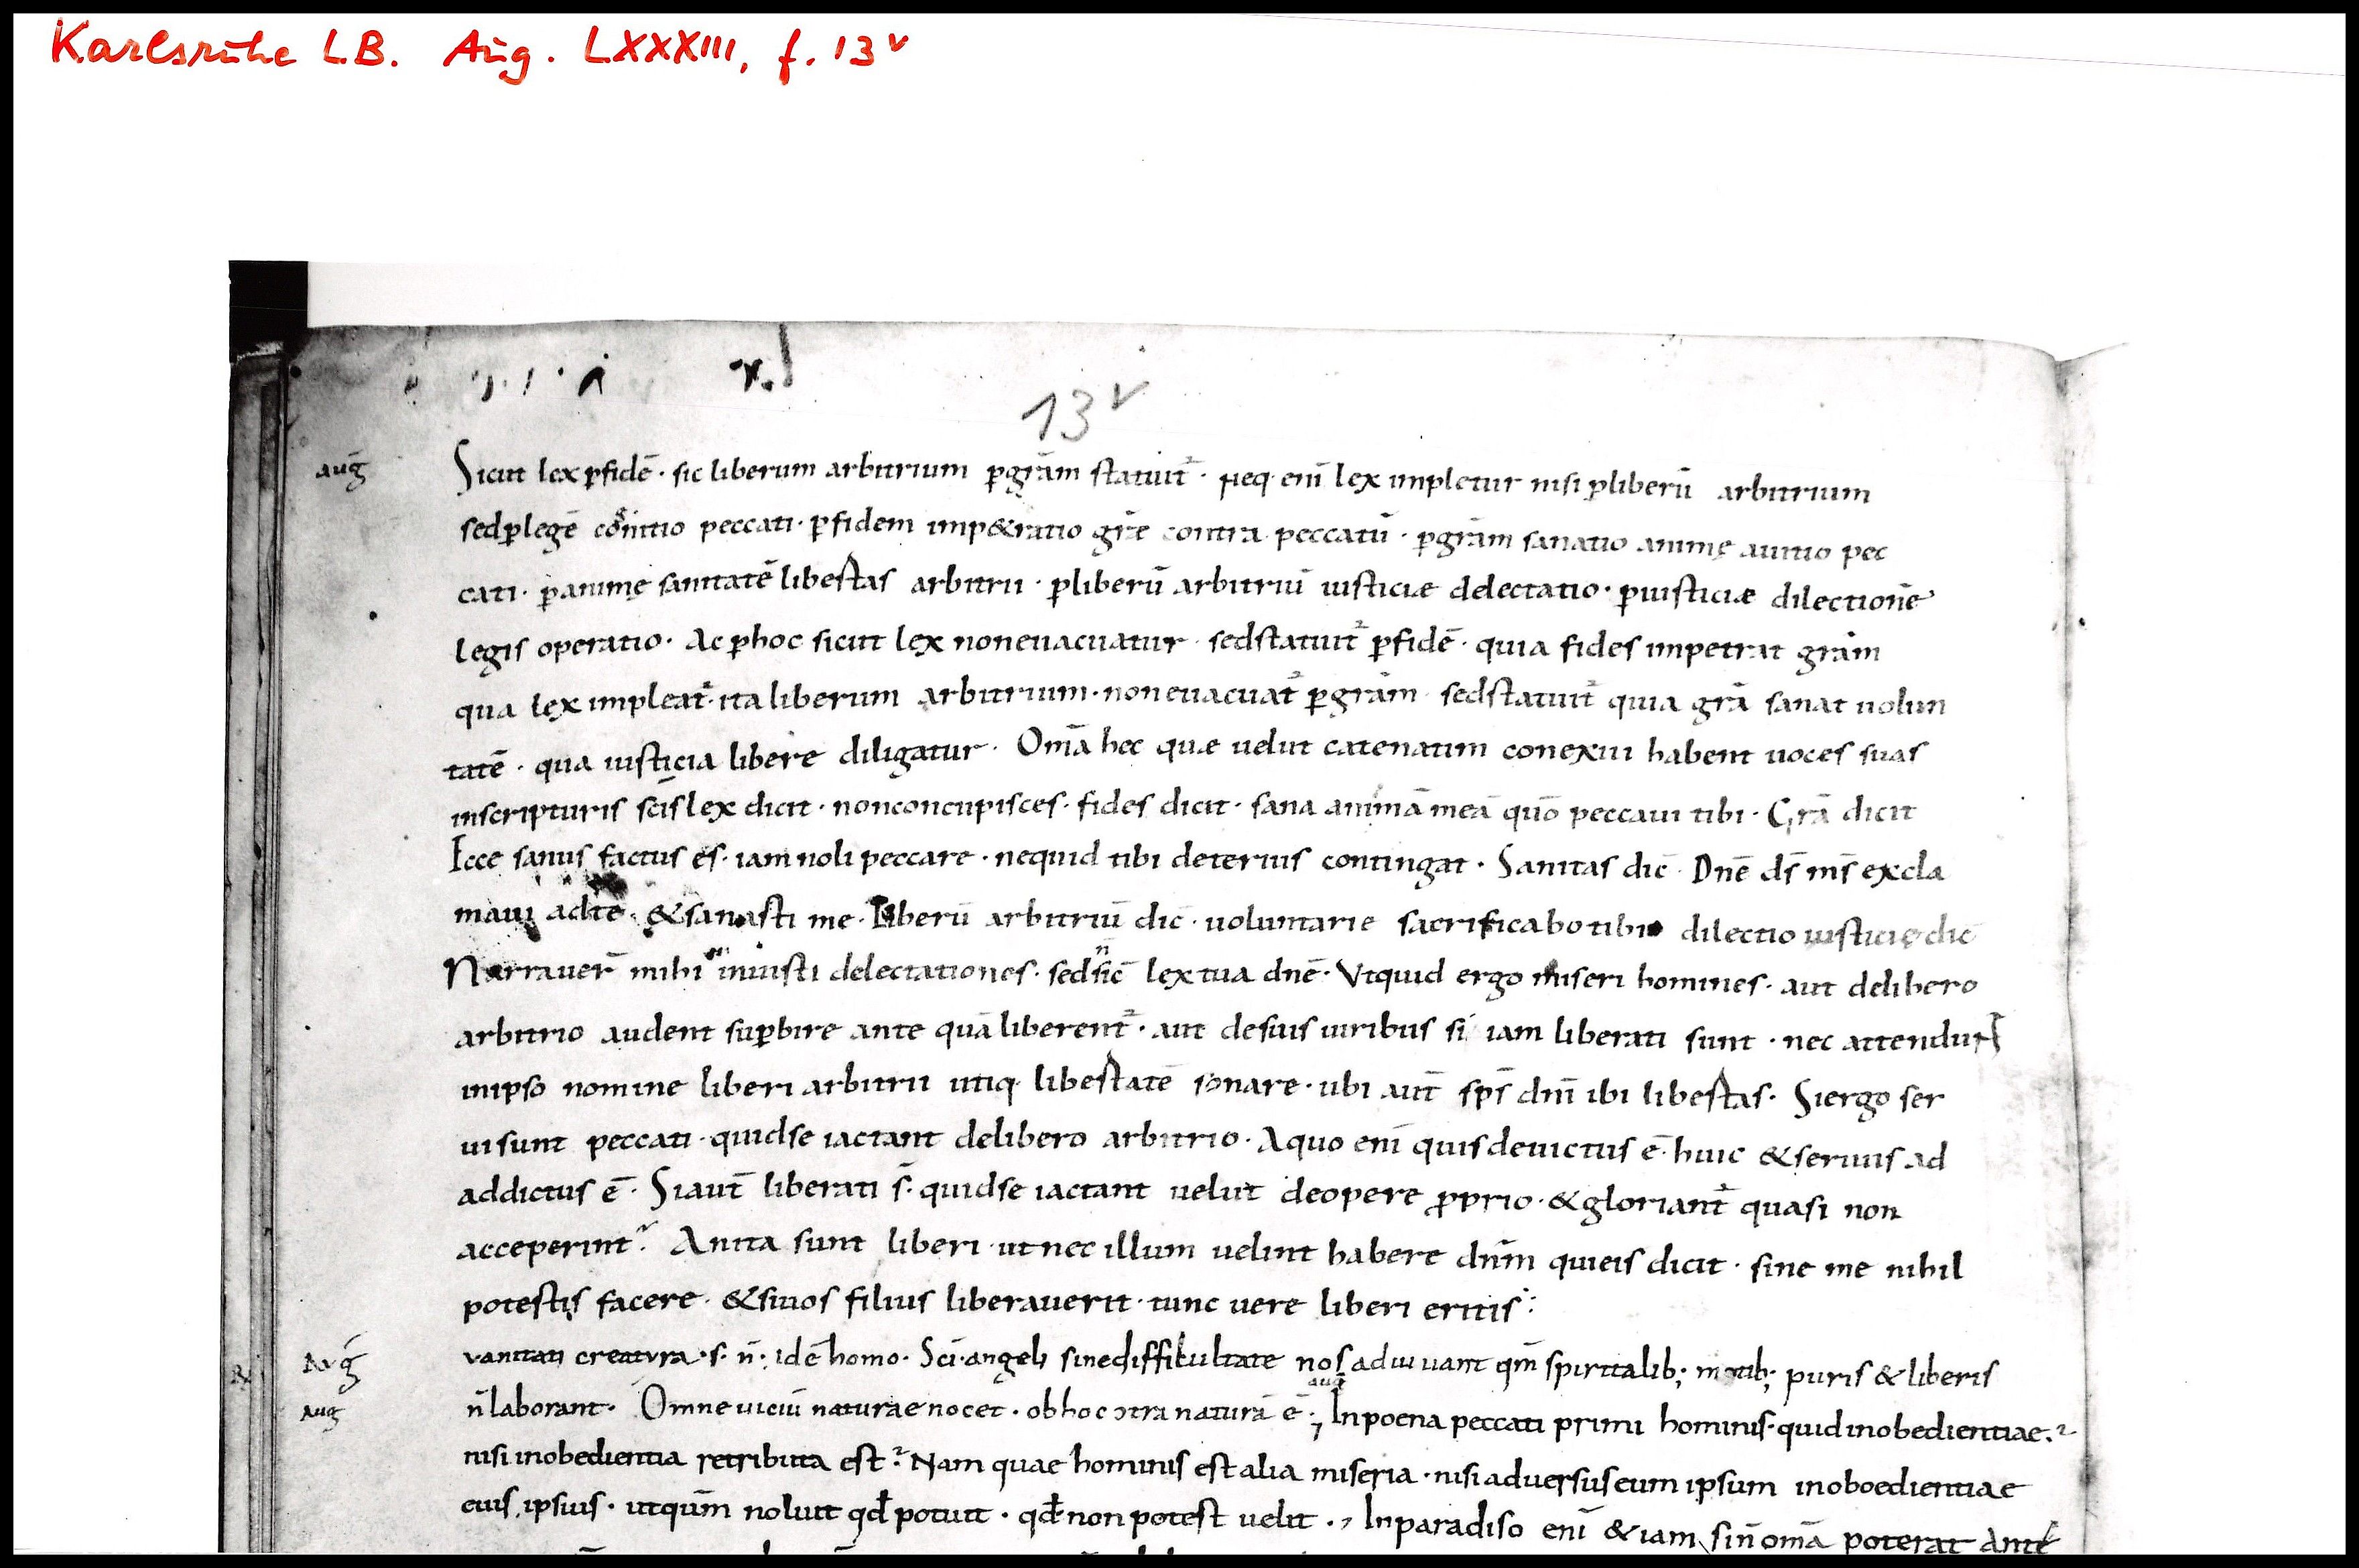 Karlsruhe L.B. Aug. LXXXIII, f. 13v
x.
13v
auḡ
Sicut lex p̲fidē · sic liberum arbitrium p̲grām statuit᷑ · neq· enī lex impletur nisi p̲liberū arbitrium
sedp̲legē cognitio peccati · p̲fidem imp&ratio grē contra peccatū · p̲grām sanatio animę auitio pec
cati · p̲animę sanitatē libertas arbitrii · p̲liberū arbitriū iusticiæ delectatio · p̲iusticiæ dilectionē
legis operatio · Ac p̲hoc sicut lex noneuacuatur · sedstatuit᷑ p̲fidē · quia fides impetrat grām
qua lex impleat᷑ · ita liberum arbitrium · noneuacuat᷑ p̲grām · sedstatuit᷑ quia grā sanat uolun
tatē · qua iusticia libere diligatur · Om̄a hec quæ uelut catenatim conexui habent uoces suas
inscripturis sc̄is lex dicit · nonconcupisces · fides dicit · sana animā meā quō peccaui tibi · Grā dicit
Ecce sanus factus es · iam noli peccare · nequid tibi deterius contingat · Sanitas dic̄ · Dnē ds̄ ms̄ excla
maui adte · &sanasti me · Liberū arbitriū dic̄ · uoluntarie sacrificabo tibi dilectio iusticię dic̄
Narrauer̄ mihi iniusti delectationes · sed n̄ sic̄ lex tua dnē · Vtquid ergo miseri homines · aut delibero
arbitrio audent sup̲bire ante quā liberent᷑ · aut desuis uiribus si iam liberati sunt · nec attendunt
inipso nomine liberi arbitrii utiq· libertatē sonare · ubi aut̄ sps̄ dnī ibi libertas · Siergo ser
ui sunt peccati · quidse iactant delibero arbitrio · Aquo enī quis deuictus ē · huic &seruus ad
addictus ē · Siaut̄ liberati s̄ · quidse iactant uelut deopere p̲prio · &gloriant᷑ quasi non
acceperint ? Anita sunt liberi · ut nec illum uelint habere dnm̄ quieis dicit · sine me nihil
potestis facere · &siuos filius liberauerit · tunc uere liberi eritis :
Avḡ
vanitati creatvra · s · n̄ · idē homo · Sc̄i · angeli sinedifficultate nos adiuuant qm̄ spiritalib; motib; puris & liberis
aug
auḡ
n̄ laborant · Omne uiciū naturae nocet · obhoc ɔtra naturā ē · ; Inpoena peccati primi hominis · quid inobedientiae · ?
nisi inobedientia retributa est ? Nam quae hominis est alia miseria · nisi aduersus eum ipsum inoboedientiae
eius ipsius · utqūm noluit qđ potuit · qđ non potest uelit · , Inparadiso enī &iam sin̄ om̄a poterat ante